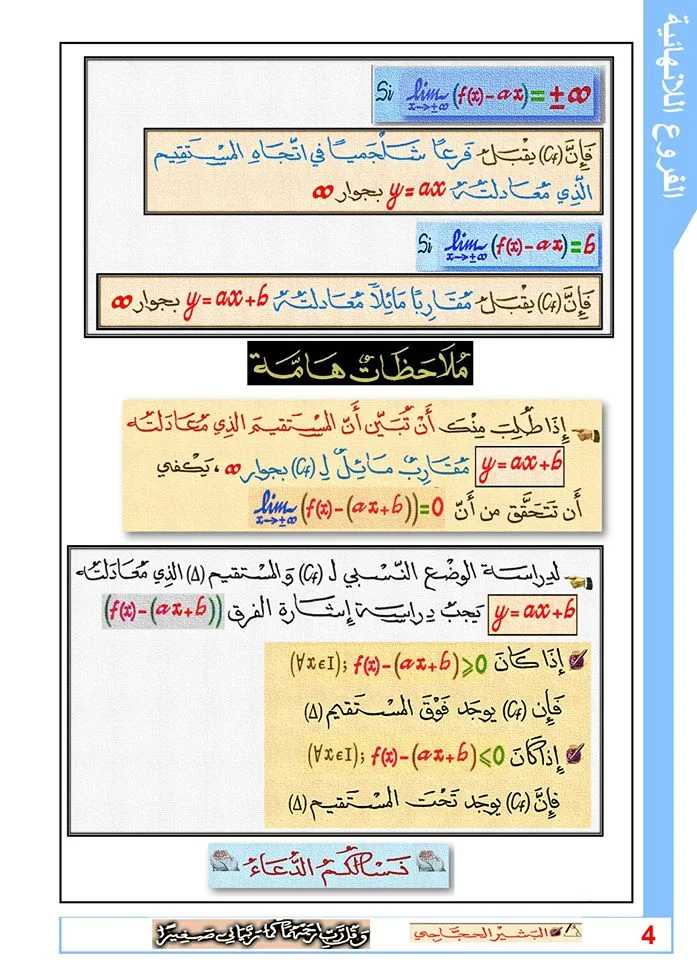 الفروع اللانهائية
Si lim x→±∞ (f(x)-ax)=±∞
فَإِنَّ (Cf) يقبَلُ فَرعًا شَلجَميًا في اتّجَاهِ المسْتَقيم
الّذِي مُعَادلتهُ y=ax بجوار ∞
Si lim x→±∞ (f(x)-ax)=b
فَإِنَّ (Cf) يقبَلُ مُقَارِبًا مَائِلاً مُعَادلتُهُ y=ax+b بجوار ∞
مُلَاحَظَاتٌ هَامَّة
إِذَا طُلِبَ مِنْكَ أَنْ تُبَيِّن أَنّ المسْتقيمَ الذِي مُعَادَلتُه
y=ax+b مُقَارِبٌ مَائِلٌ لِ (Cf) بجوار ∞، يَكْفي
أَن تَتَحَقَّق من أَنّ lim x→±∞ (f(x)-(ax+b))=0
لدِراسَة الوضْع النّسْبي ل (Cf) وَالمستقيم (Δ) الذِي مُعَادَلتُه
y=ax+b يَجبُ دِراسَة إِشارة الفرق (f(x)-(ax+b))
إِذَا كَانَ (∀x∈I); f(x)-(ax+b)⩾0
فَإِن (Cf) يوجَد فَوْقَ المسْتقيم (Δ)
إِذا كَانَ (∀x∈I); f(x)-(ax+b)⩽0
فإِنَّ (Cf) يوجَد تَحْتَ المسْتقيم (Δ)
نَسْألُكُمُ الدُّعَاءُ
4
البَشير الحجَّاجي
وَقُل رَّبِّ ارْحَمْهُمَا كَمَا رَبَّيَانِي صَغِيرًا